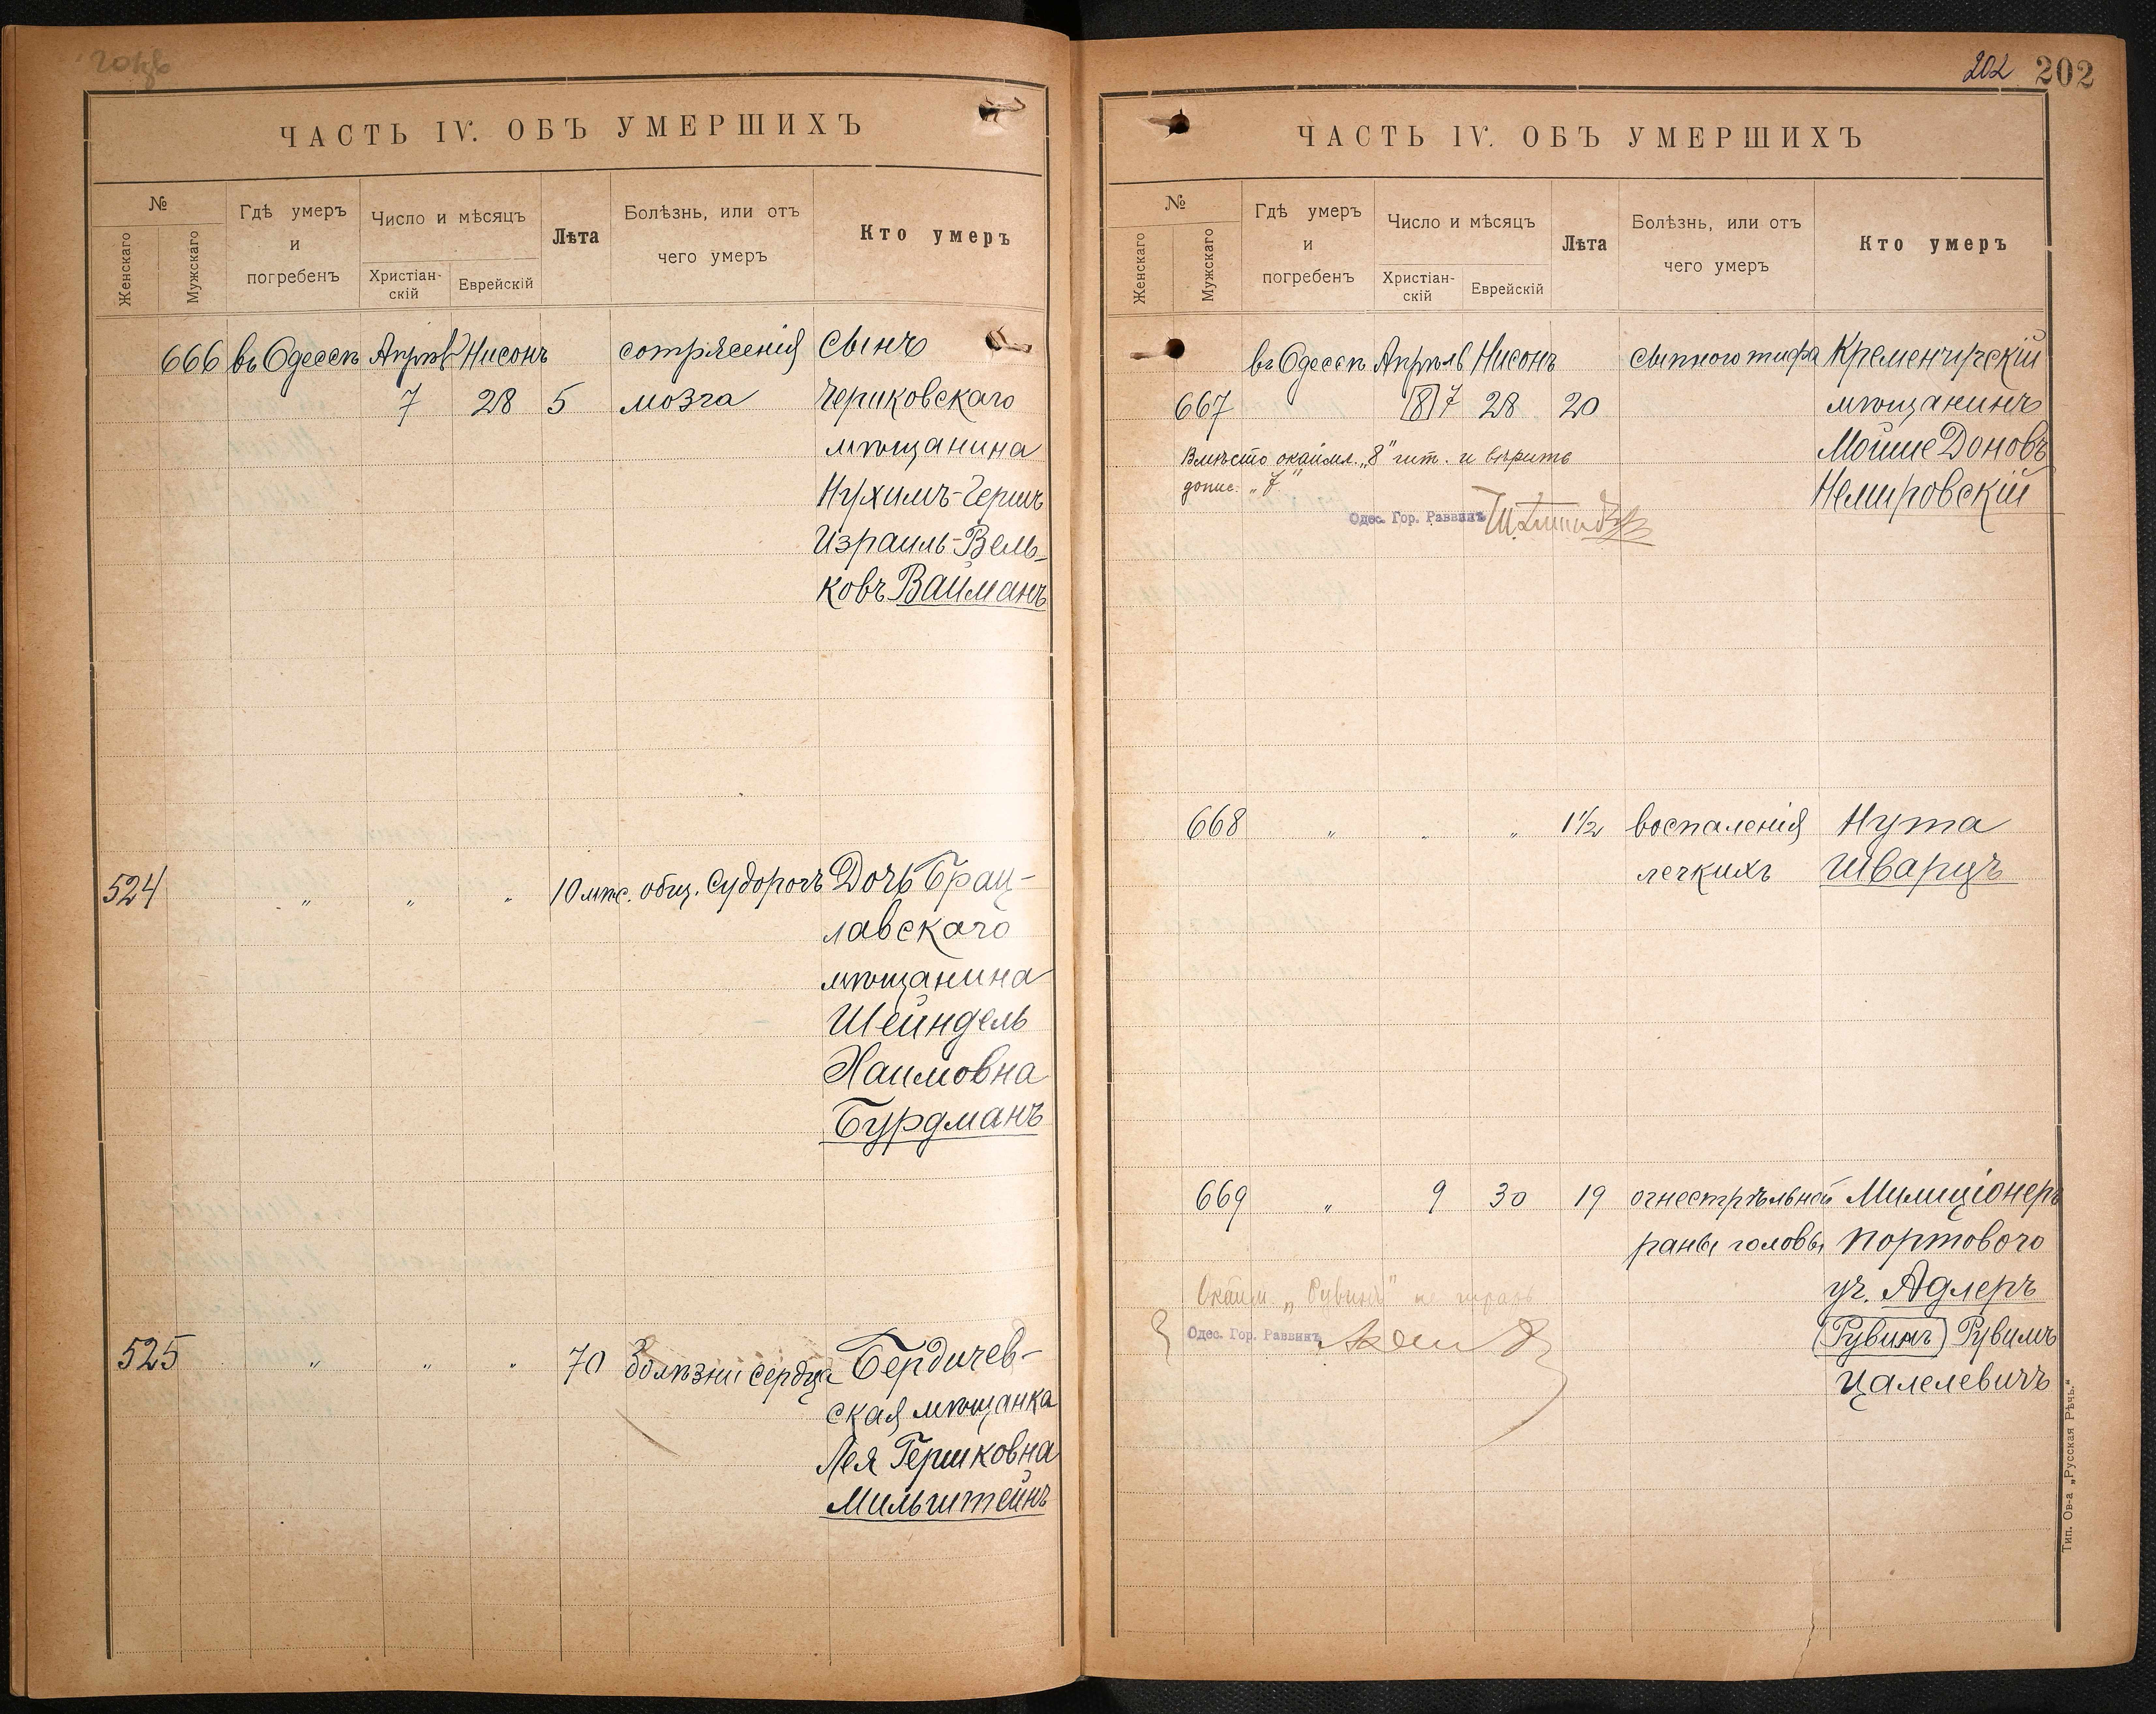 ЧАСТЬ IV. ОБЪ УМЕРШИХЪ
№
Женскаго
Мужскаго
Гдѣ умеръ
и
погребенъ
Число и мѣсяцъ
Христіан-
скій
Еврейскій
Лѣта
Болѣзнь, или отъ
чего умеръ
Кто умеръ
666 въ Одессѣ Апрѣль Нисонъ сотрясенія Сынъ
7 28 5 мозга Чериковскаго
мѣщанина
Нухимъ-Герш
Израиль-Вель-
ковъ Вайманъ
524 " " " 10 мѣс. общ. судорогъ Дочь Брац-
лавскаго
мѣщанина
Шейндель
Хаимовна
Бурдманъ
525 " " " 70 болѣзни сердца Бердичев-
ская мѣщанка
Лея Гершковна
Мильштейнъ
202 202
ЧАСТЬ IV. ОБЪ УМЕРШИХЪ
№
Женскаго
Мужскаго
Гдѣ умеръ
и
погребенъ
Число и мѣсяцъ
Христіан-
скій
Еврейскій
Лѣта
Болѣзнь, или отъ
чего умеръ
Кто умеръ
въ Одессѣ Апрѣль Нисонъ сыпного тифа Кременчугскій
667 8 7 28 20 мѣщанинъ
Вмѣсто окаймл. „8" чит. и вѣрить Мойше Доновъ
допис. „7" Немировскій
Одес. Гор. Раввинъ
668 " " " 1½ воспаленія Нута
легкихъ Шварцъ
669 " 9 30 19 огнестрѣльной Милиціонеръ
раны головы портового
уч. Адлеръ
Окайм. „Рувинъ" не
(Рувинъ) Рувимъ
Одес. Гор. Раввинъ
Цалелевичъ
Тип. Ов-а „Русская Рѣчь."